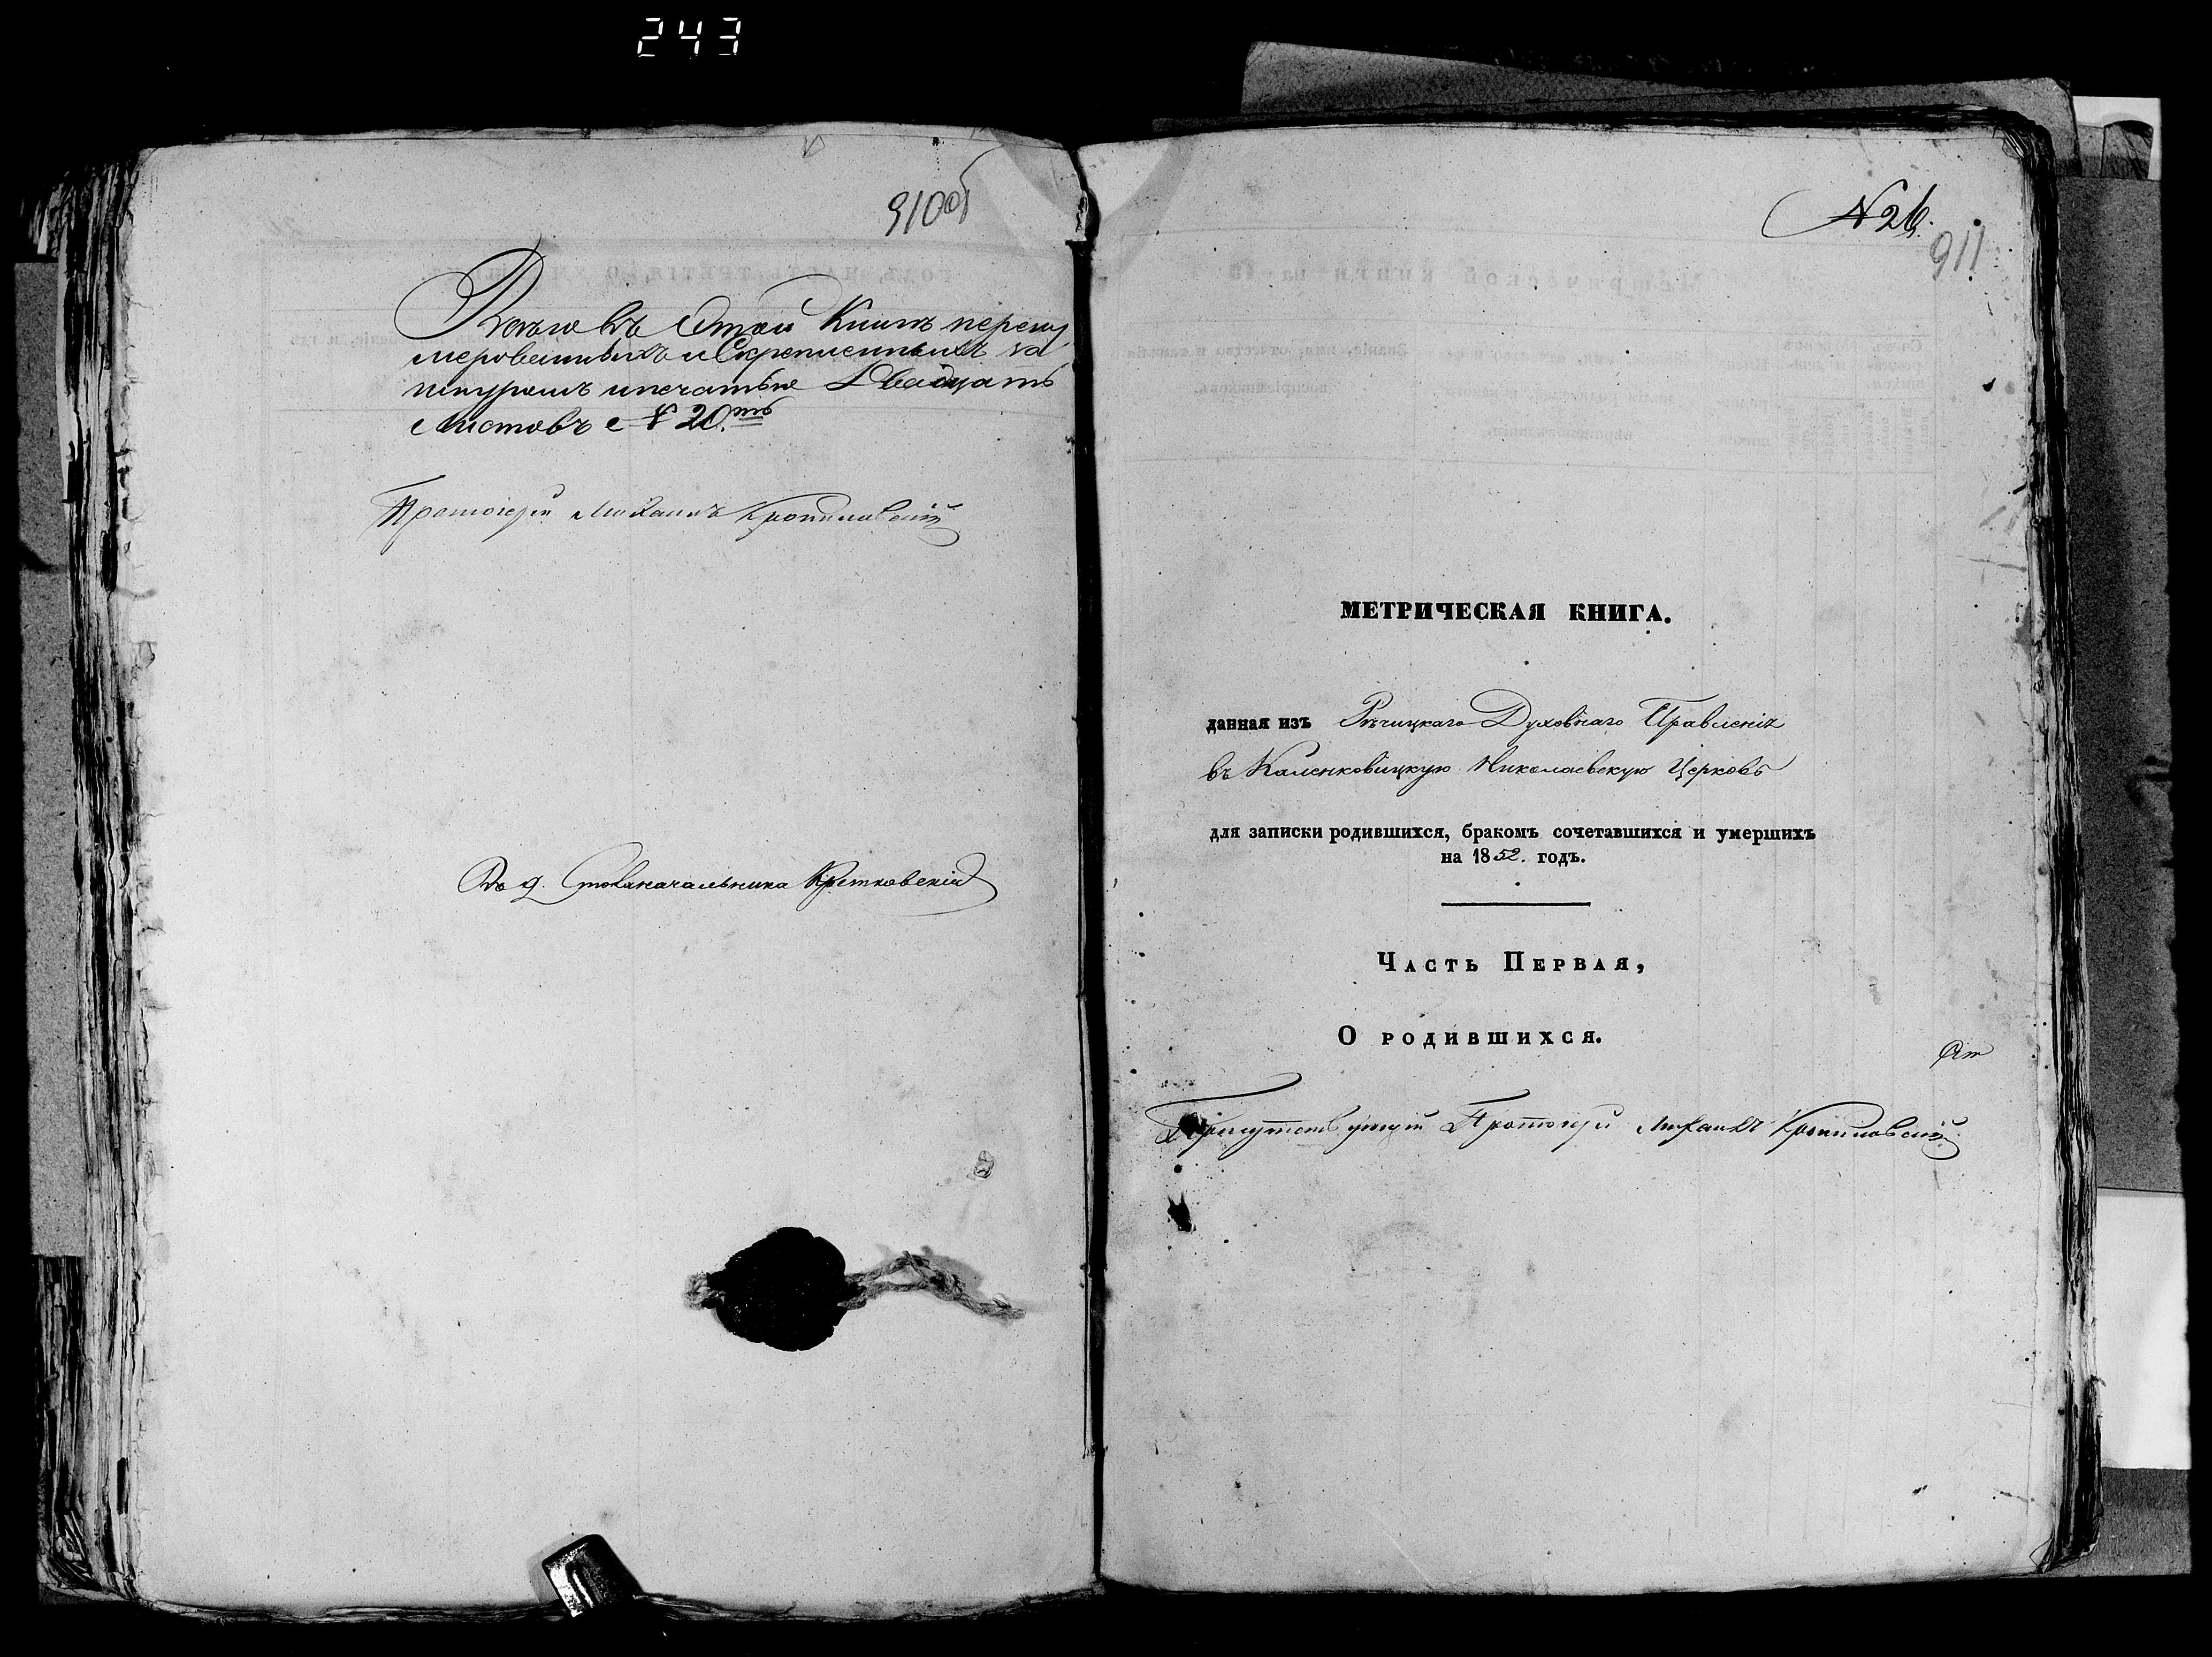 243
910об
Всего въ Этой Книгѣ перену
мерованныхъ и Скрепленныхъ за
шнуромъ и печатью Двадцать
Листовъ е № 20.ть
Протоіерей Михаилъ Кропиловскій
Въ д. Столоначальника Кретковскій
N 26.
911
МЕТРИЧЕСКАЯ КНИГА.
данная изъ Рѣчицкаго Духовнаго Правленія
въ Каленковицкую Николаевскую Церковь
для записки родившихся, бракомъ сочетавшихся и умершихъ
на 1852. годъ.
Часть Первая,
О родившихся.
Присутствующій Протоіерей Михаилъ Кропиловскій